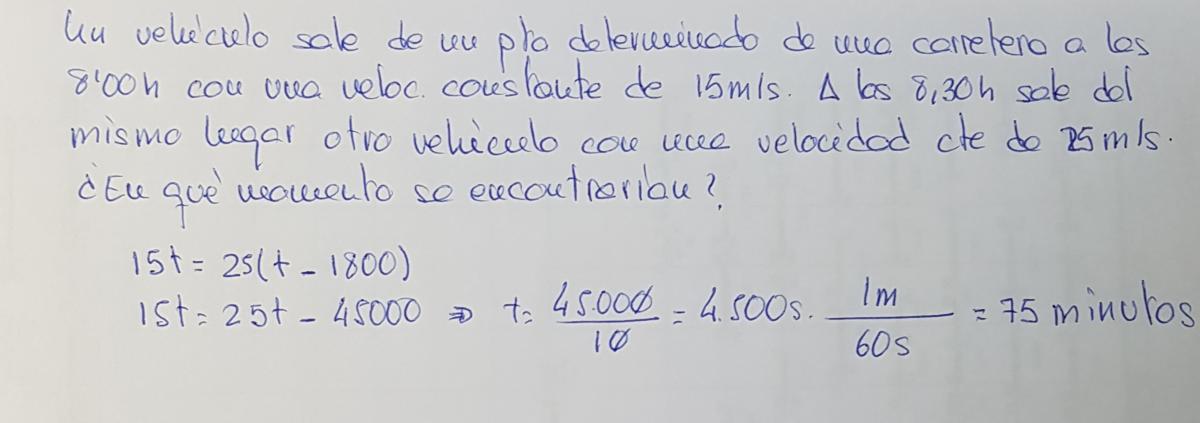 Un vehículo sale de un pto determinado de una carretera a las
8'00h con una veloc. constante de 15m/s. A las 8,30h sale del
mismo lugar otro vehículo con una velocidad cte de 25m/s.
¿En qué momento se encontrarían?
15t = 25(t - 1800)
15t = 25t - 45000 ⇒ t = 45.000/10 = 4.500s. 1m/60s = 75 minutos